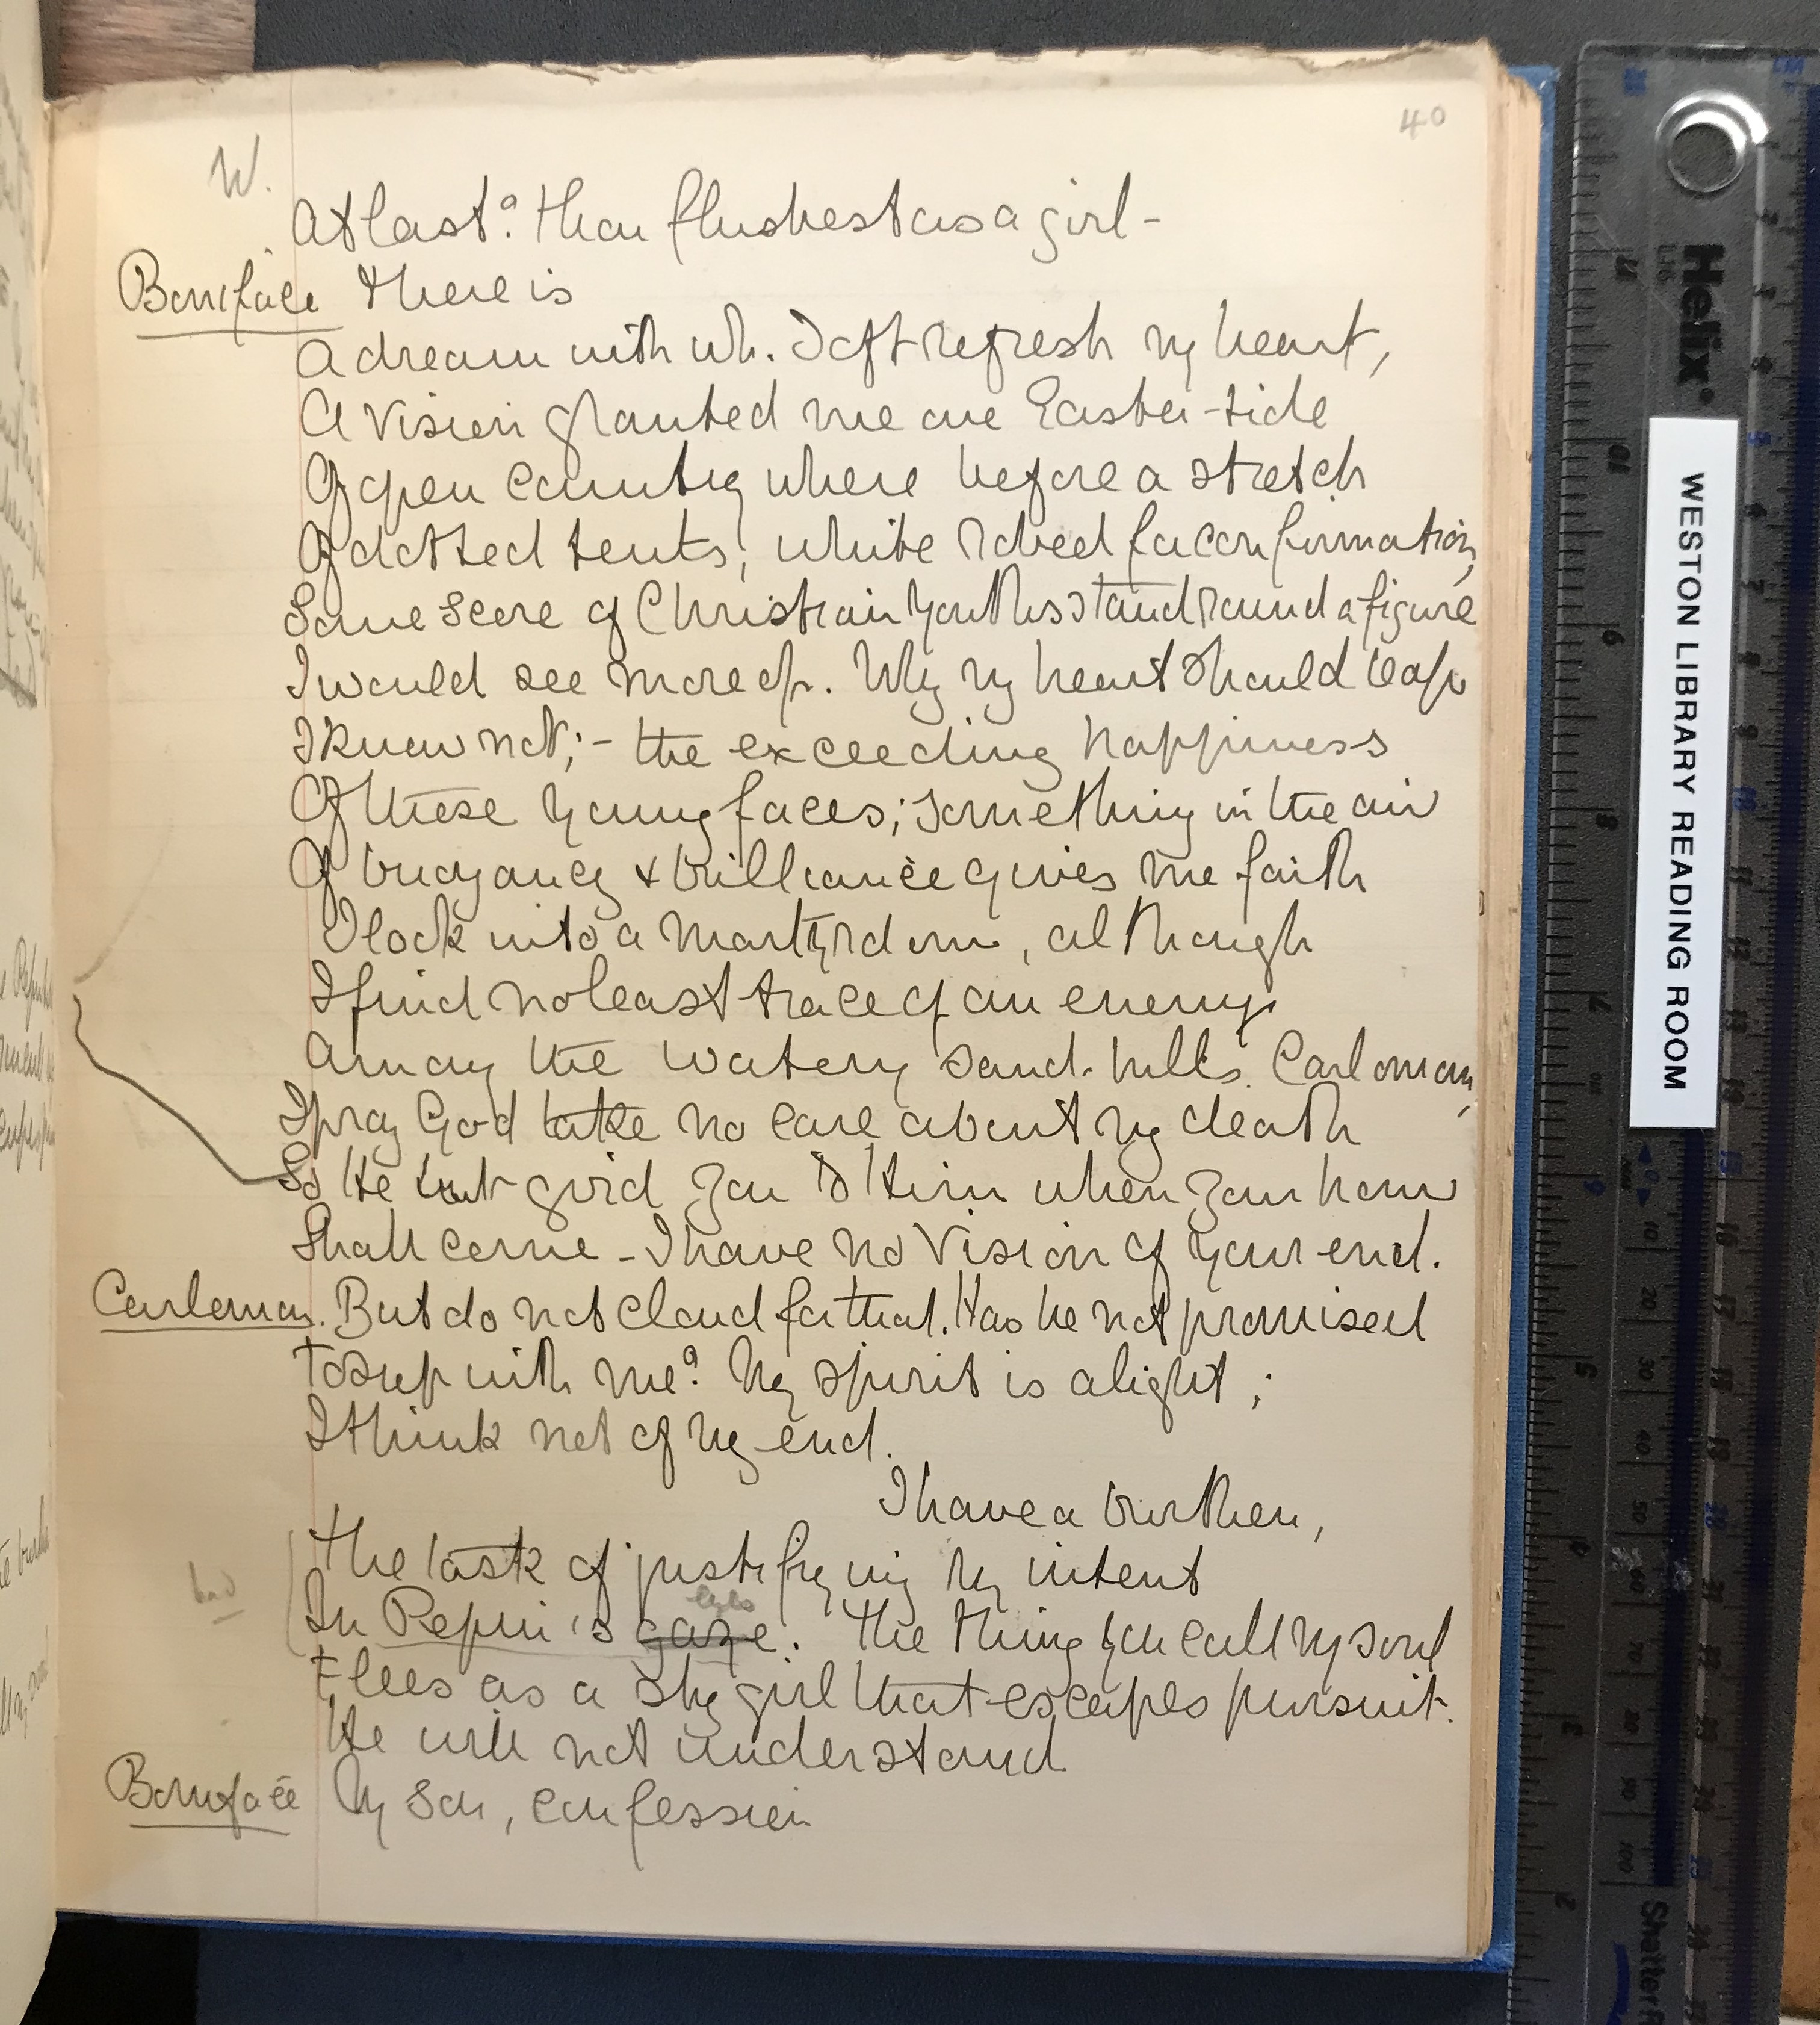 40
W.
At last? thou flushest as a girl -
Boniface There is
A dream with wh. I oft refresh my heart,
A vision granted me one Easter-tide
Of open country where before a stretch
Of dotted tents, white robed for confirmation,
Some score of Christian youths stand round a figure
I would see more of. Why my heart should leap
I know not; - the exceeding happiness
Of these young faces; something in the air
Of buoyancy & brilliance gives me faith
I look into a martyrdom, although
I find no least trace of an enemy
Among the watery sand-hills. Carloman,
I pray God take no care about my death
So He but guid you to Him when your hour
Shall come - I have no vision of your end.
Carloman. But do not cloud for that. Has he not promised
To sup with me? My spirit is alight;
I think not of my end.
I have a burthen,
The task of justifying my intent
eyes
In Pepin's gaze. The thing you call my soul
Flees as a shy girl that escapes pursuit.
He will not understand
Boniface My son, confession
Helix
WESTON LIBRARY READING ROOM
Shatter